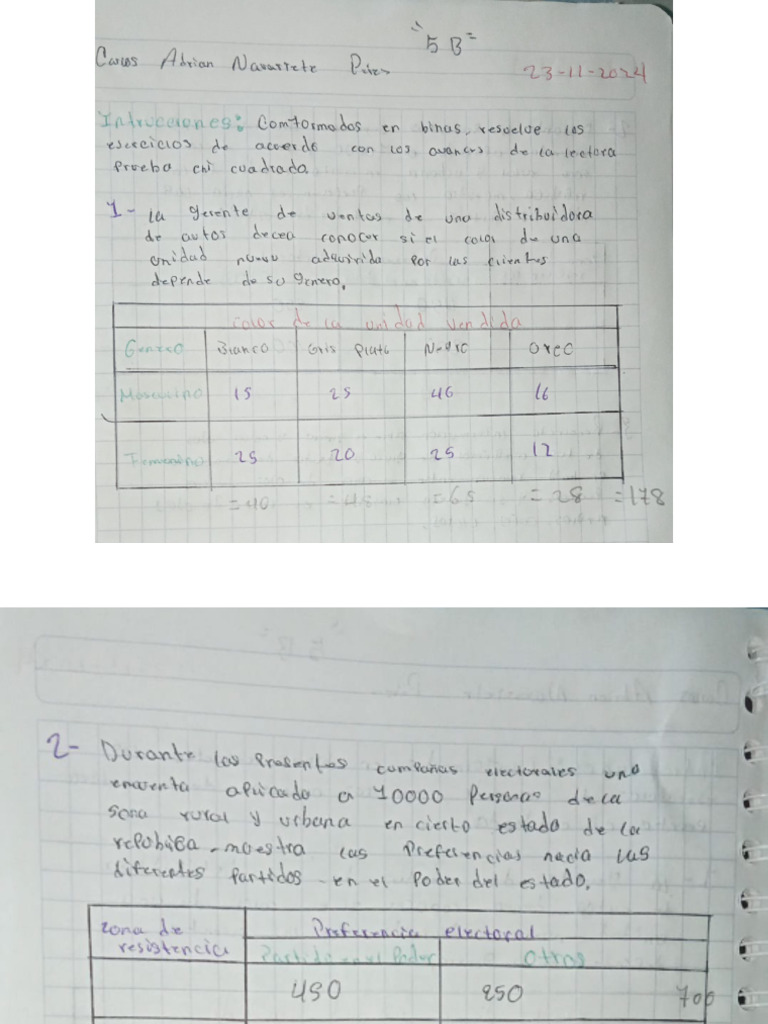 "5 B"
Carlos Adrian Navarrete
23-11-2024
Intrucciones: Comformados en binas, resuelve los
esercicios de acuerdo con los avances de la lectora
Prueba chi cuadrada.
1- La gerente de ventas de una distribuidora
de autos decea conocer si el color de una
unidad nueva adquirida por las clientes
depende de su genero.
Color de la unidad vendida
Genero Blanco Gris Plata Negro Oreo
Masculino 15 25 46 16
Femenino 25 20 25 12
=40 =45 =65 =28 =178
2- Durante las Presentes campañas electorales una
encuenta aplicado a 10000 Personas de la
sona rural y urbana en cierto estado de la
republica muestra las Preferencias hacia las
diferentes partidos en el Poder del estado.
Zona de Preferencia electoral
resistencia Partido en el Poder Otros
450 250 700